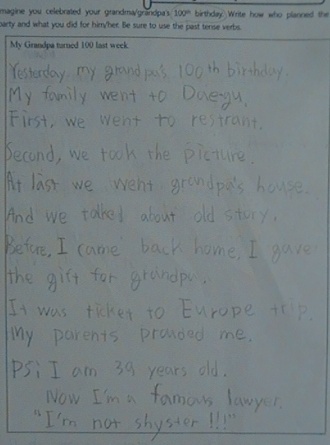 magine you celebrated your grandma/grandpa's 100th birthday. Write how who planned the
party and what you did for him/her. Be sure to use the past tense verbs.
My Grandpa turned 100 last week.
Yesterday, my grandpa's 100th birthday.
My family went to Daegu.
First, we went to restrant.
Second, we took the picture.
At last we went grandpa's house.
And we talked about old story.
Before, I came back home, I gave
the gift for grandpa.
It was ticket to Europe trip.
My parents prouded me.
PS: I am 39 years old.
Now I'm a famous lawyer.
"I'm not shyster !!!"